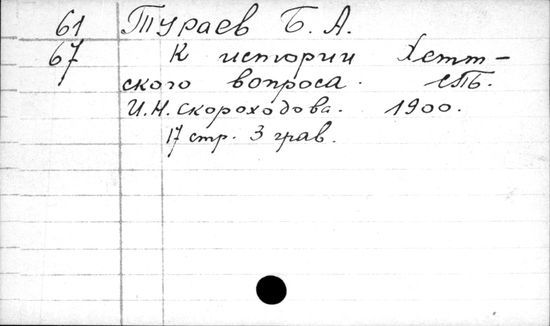 61 Тураев Б. А.
67 К истории Хетт-
ского вопроса. СПБ.
И.Н. Скороходова. 1900.
17 стр. 3 грав.